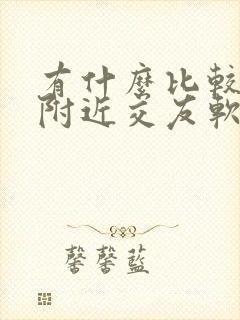 有什麼比較
附近交友軟
馨馨藍